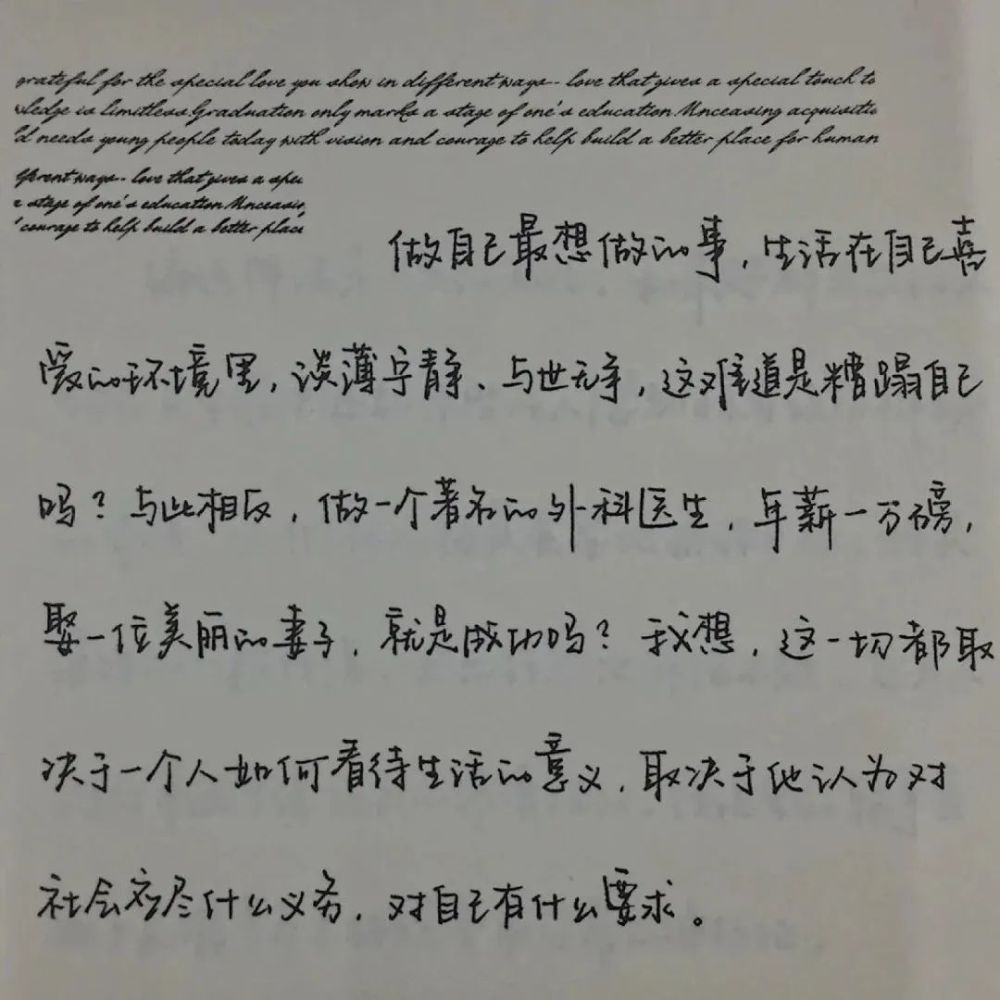 grateful for the special love you show in different ways-- love that gives a special touch to
wledge is limitless.Graduation only marks a stage of one's education.Unceasing acquisitio
'd needs young people today with vision and courage to help build a better place for human
fferent ways-- love that gives a spec
e stage of one's education.Unceasin
' courage to help build a better place
做自己最想做的事，生活在自己喜
爱的环境里，淡薄宁静、与世无争，这难道是糟蹋自己
吗？与此相反，做一个著名的外科医生，年薪一万磅，
娶一位美丽的妻子，就是成功吗？我想，这一切都取
决于一个人如何看待生活的意义，取决于他认为对
社会应尽什么义务，对自己有什么要求。